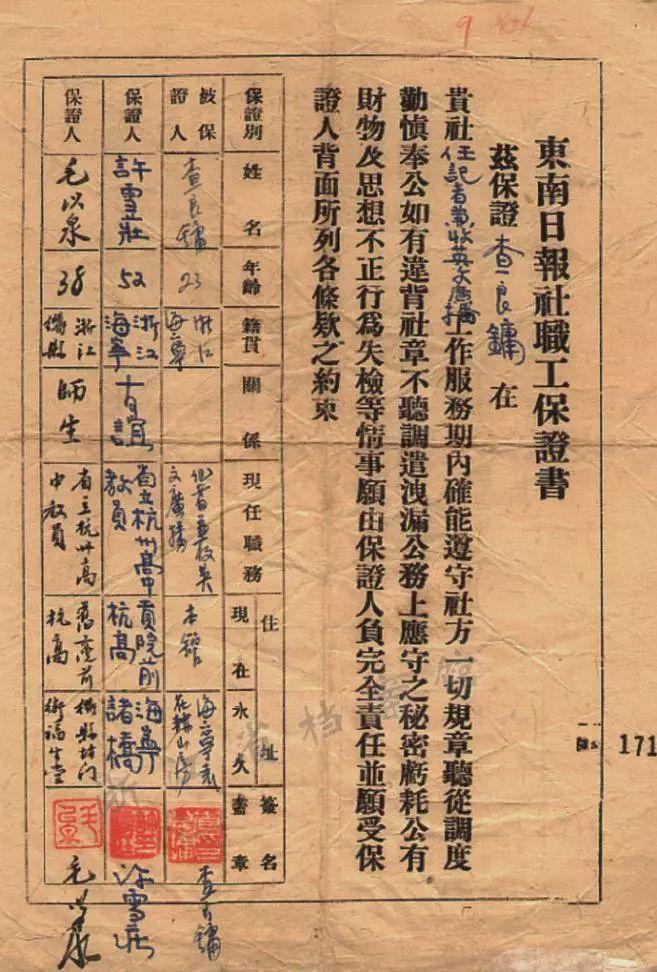 9
東南日報社職工保證書
茲保證查良鏞在
貴社任記者兼收英文廣播工作服務期內確能遵守社方一切規章聽從調度
勤慎奉公如有違背社章不聽調遣洩漏公務上應守之秘密虧耗公有
財物及思想不正行為失檢等情事願由保證人負完全責任並願受保
證人背面所列各條欵之約束
保證別 姓名 年齡 籍貫 關係 現任職務 住址 現在 永久 簽名蓋章
被保證人 查良鏞 23 浙江海寧 記者兼收英文廣播 本館 海寧袁花赫山房 查良鏞
保證人 許雪莊 52 浙江海寧 省立杭州高中教員 貢院前杭高 海寧諸橋 許雪莊
保證人 毛以泉 38 浙江 師生 省立杭州高中教員 舊貢院前杭高 毛以泉
171